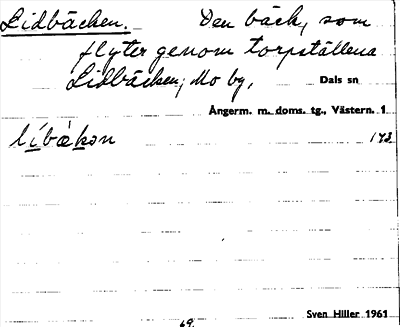 Lidbäcken. Den bäck, som
flyter genom torpställena
Lidbäcken, Mo by, Dals sn
Ångerm. m. doms. tg., Västern. 1
líbäkən 173
Sven Hiller 1961
69.